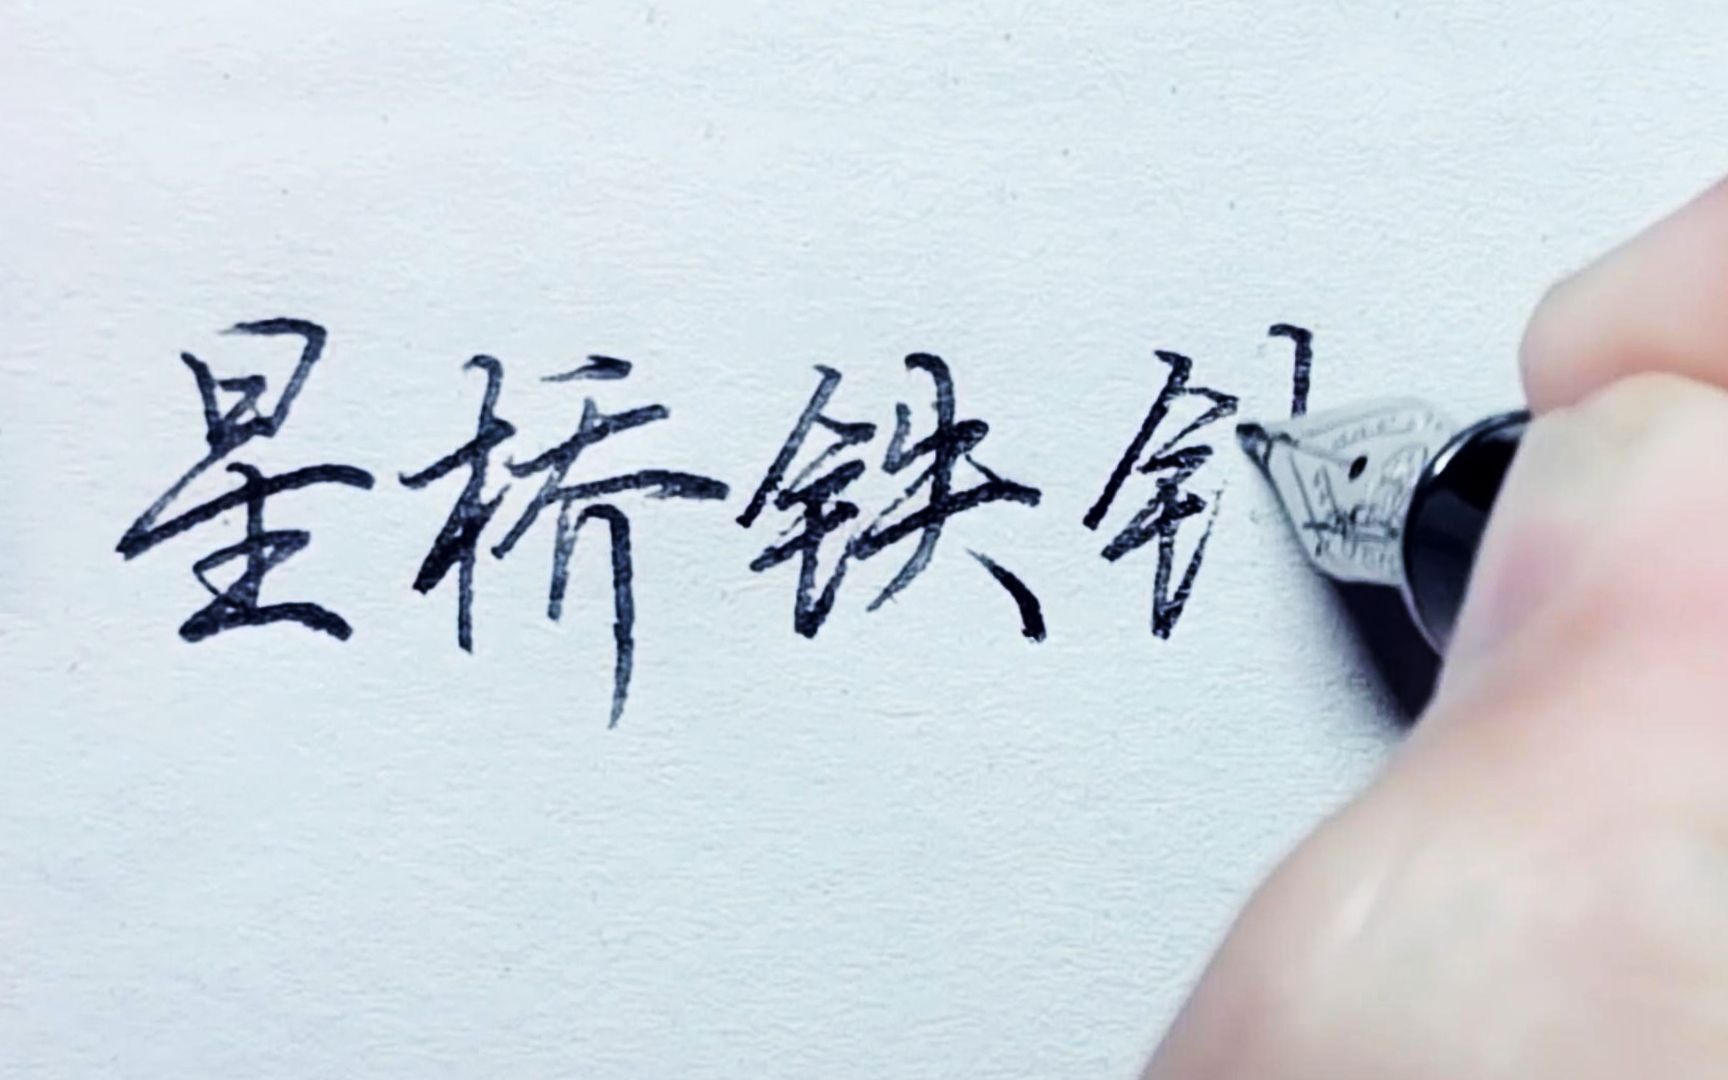 星桥铁